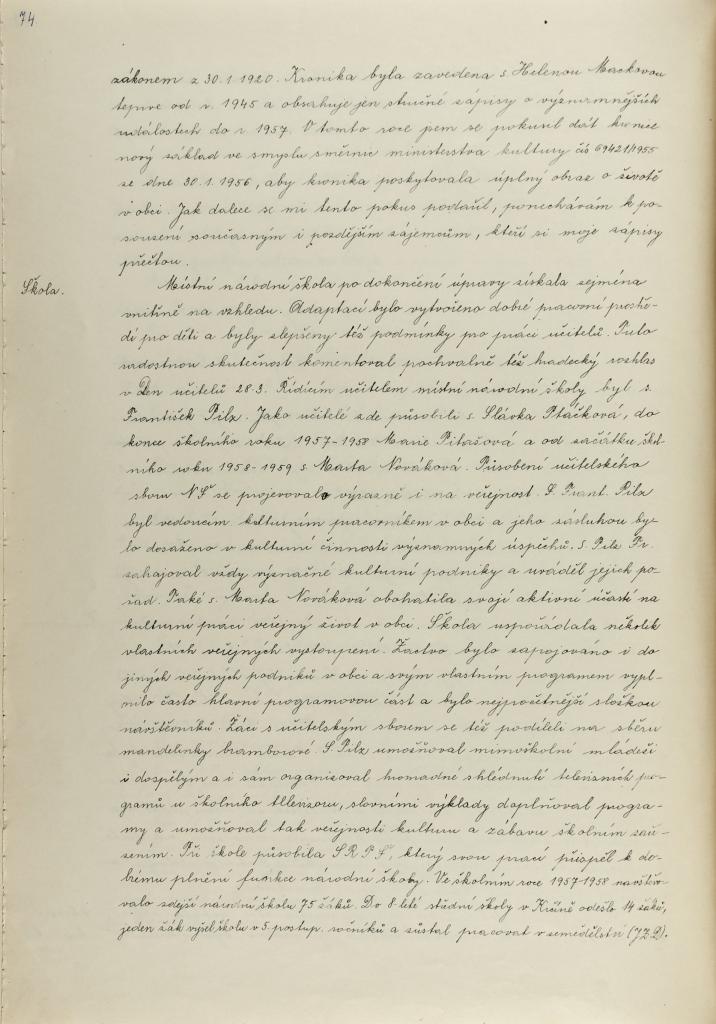 74
zákonem z 30.1.1920. Kronika byla zavedena s. Helenou Mackovou
teprve od r. 1945 a obsahuje jen stručné zápisy o významnějších
událostech do r. 1957. V tomto roce jsem se pokusil dát kronice
nový základ ve smyslu směrnic ministerstva kultury čís 69421/1955
ze dne 30.1.1956, aby kronika poskytovala úplný obraz o životě
v obci. Jak dalece se mi tento pokus podařil, ponechávám k po-
souzení současným i pozdějším zájemcům, kteří si moje zápisy
přečtou.
Škola.
Místní národní škola po dokončení úpravy získala zejména
vnitřně na vzhledu. Adaptací bylo vytvořeno dobré pracovní prostře-
dí pro děti a byly zlepšeny též podmínky pro práci učitelů. Tuto
radostnou skutečnost komentoval pochvalně též hradecký rozhlas
v Den učitelů 28.3. Řídícím učitelem místní národní školy byl s.
František Pilz. Jako učitelé zde působili s. Slávka Ptáčková, do
konce školního roku 1957-1958 Marie Pitašová a od začátku škol-
ního roku 1958-1959 s. Marta Nováková. Působení učitelského
sboru NŠ se projevovalo výrazně i na veřejnost. S. Frant. Pilz
byl vedoucím kulturním pracovníkem v obci a jeho zásluhou by-
lo dosaženo v kulturní činnosti významných úspěchů. S. Pilz Fr.
zahajoval vždy význačné kulturní podniky a uváděl jejich po-
řad. Také s. Marta Nováková obohatila svojí aktivní účastí na
kulturní práci veřejný život v obci. Škola uspořádala několik
vlastních veřejných vystoupení. Žactvo bylo zapojováno i do
jiných veřejných podniků v obci a svým vlastním programem vypl-
nilo často hlavní programovou část a bylo nejpočetnější složkou
návštěvníků. Žáci s učitelským sborem se též podíleli na sběru
mandelinky bramborové. S. Pilz umožňoval mimoškolní mládeži
i dospělým a i sám organisoval hromadné shlédnutí televisních pro-
gramů u školního televizoru, slovními výklady doplňoval progra-
my a umožňoval tak veřejnosti kulturu a zábavu školním zaří-
zením. Při škole působila SRPŠ, který svou prací přispěl k do-
brému plnění funkce národní školy. Ve školním roce 1957-1958 navštěvo-
valo zdejší národní školu 75 žáků. Do 8 leté střední školy v odešlo 14 žáků,
jeden žák vyšel školu v 5. postup. ročníku a zůstal pracovat v zemědělství (JZD).